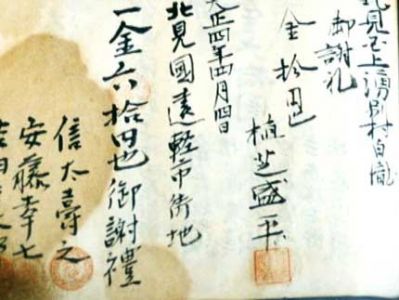 北見国上湧別村白滝
御謝礼
金拾円
植芝盛平
大正四年四月四日
北見國遠軽市街地
一金六拾円也御謝禮
信太壽之
安藤孝七
吉田